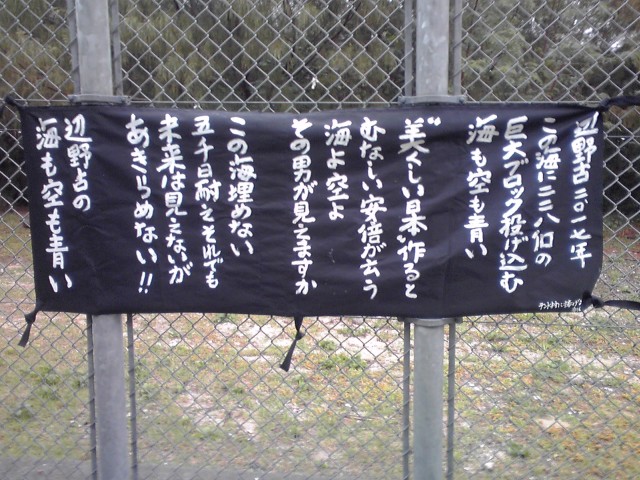 辺野古二〇一七年
この海に二二八個の
巨大ブロック投げ込む
海も空も青い
〝美〟くしい日本〝作ると
むなしい安倍が云う
海よ空よ
その男が見えますか
この海埋めない
五千日耐えそれでも
未来は見えないが
あきらめない!!
辺野古の
海も空も青い